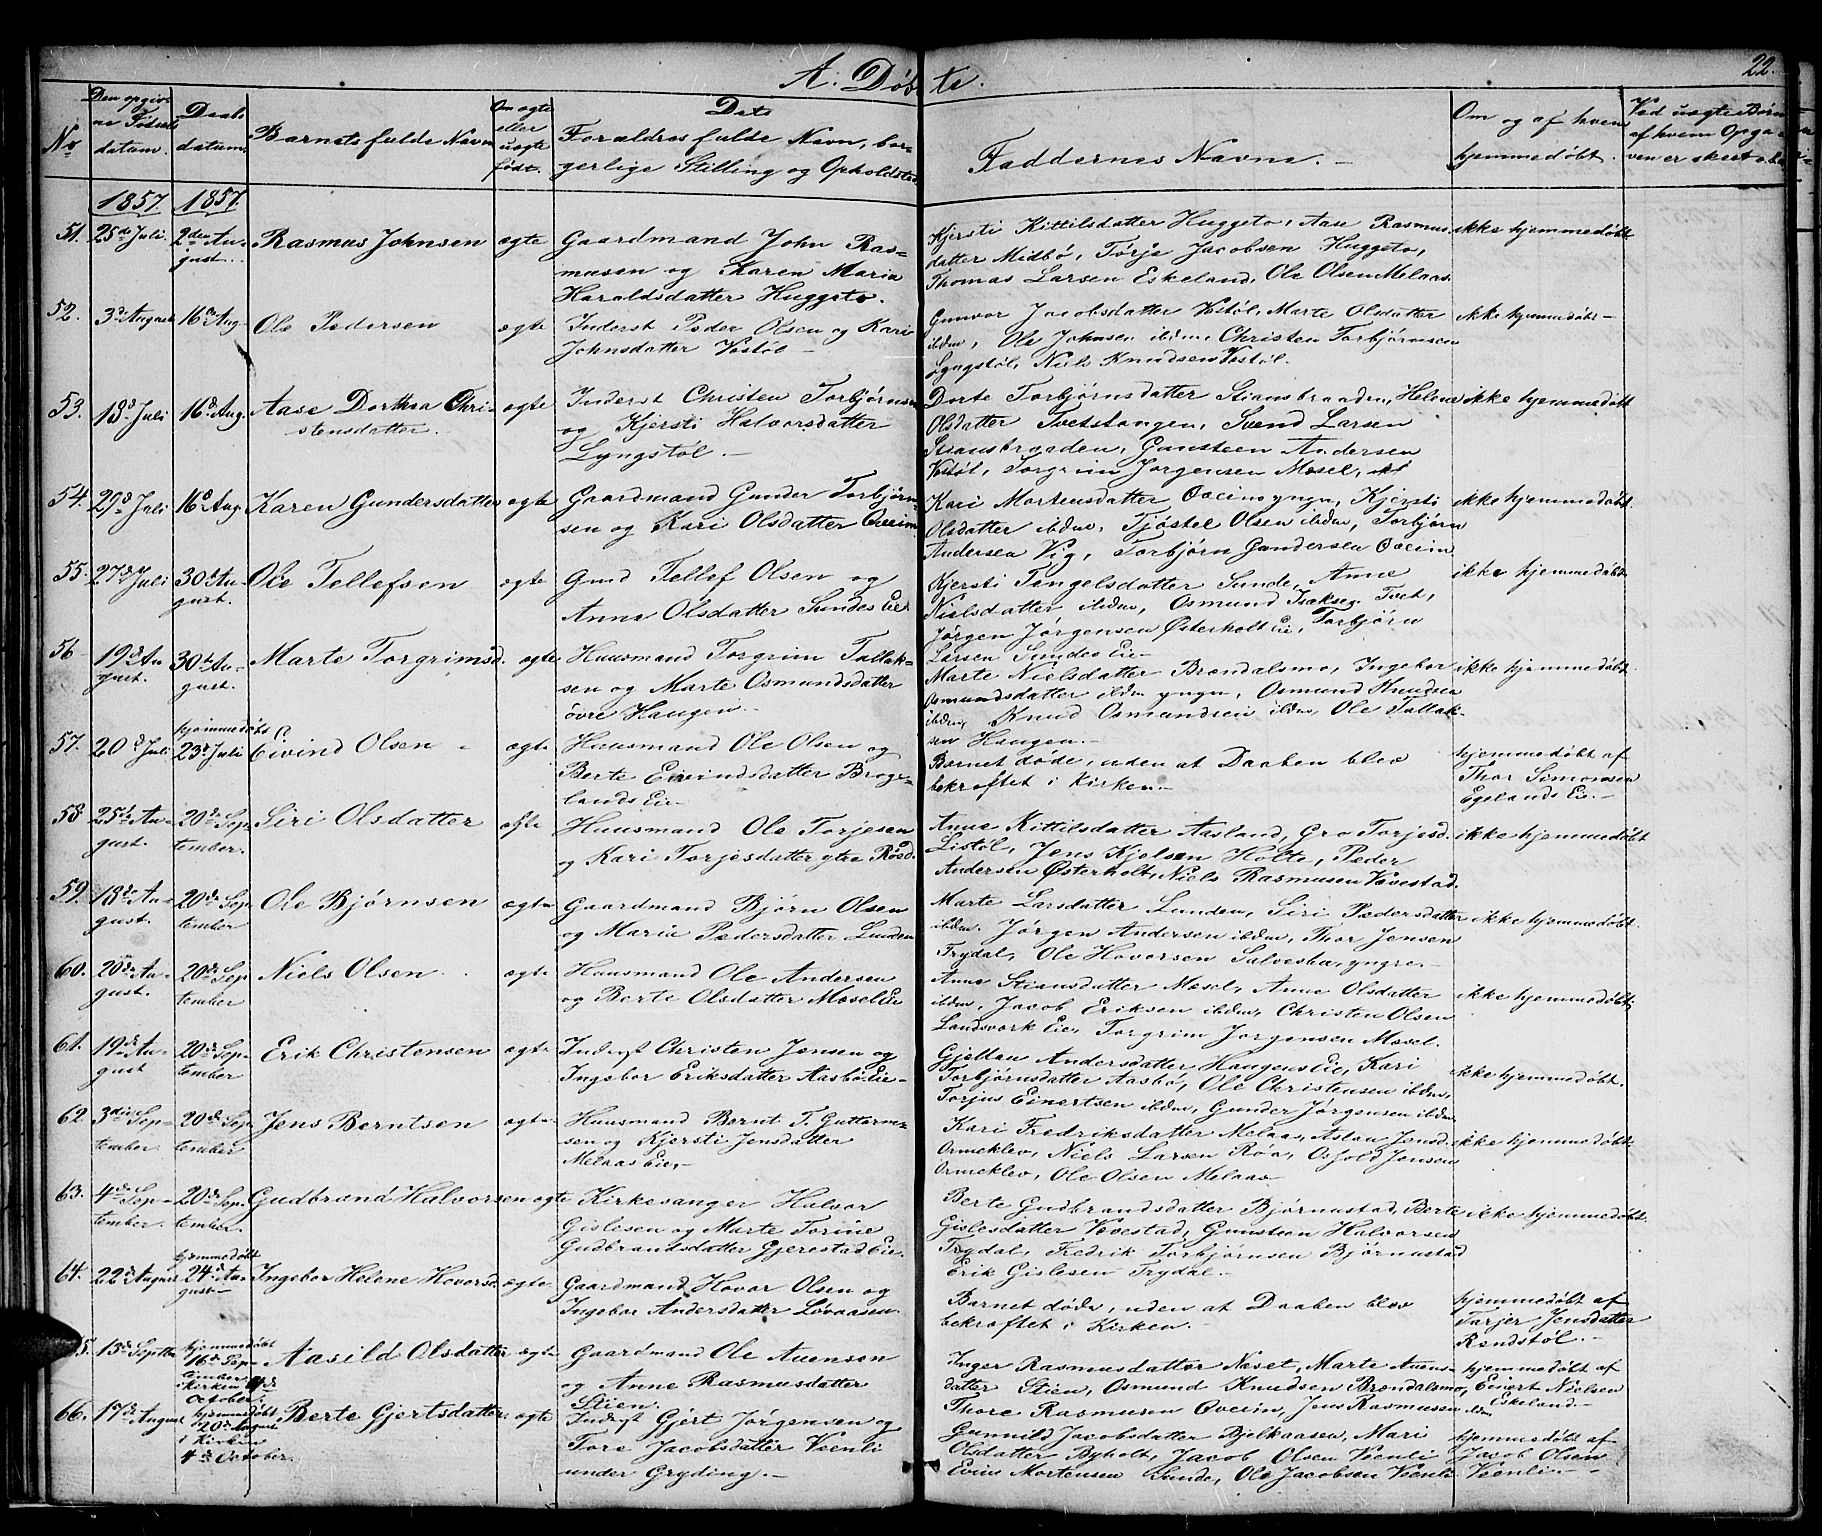 A. Døbte.
22.
No
Den opgivne Fødselsdatum.
Daabsdatum.
Barnets fulde Navn
Om ægte eller uægte født.
Dets Forældres fulde Navn, borgerlige Stilling og Opholdsted
Faddernes Navne.
Om og af hvem hjemmedøbt.
Ved uægte Børn af hvem Opgaven er skeet
1857. 1857.
51. 25de Juli. 2den August. Rasmus Johnsen ægte
Gaardmand John Rasmusen og Karen Maria
Haraldsdatter Huggeto.
Kjersti Kittilsdatter Huggeto, Aase Rasmusdatter Midbö, Tørje Jacobsen Huggeto,
Thomas Larsen Eskeland, Ole Olsen Melaas.
ikke hjemmedøbt
52. 3d August 16de Aug. Ole Pedersen ægte
Inderst Peder Olsen og Kari
Johnsdatter Vestøl
Gunvor Jacobsdatter Vestøl, Marte Olsdatter
ibdm, Ole Johnsen ibdm, Christen Torbjørnsen
Lyngstøl, Niels Knudsen Vestøl.
ikke hjemmedøbt
53. 18d Juli 16d Aug. Aase Dorthea Christensdatter. ægte
Inderst Christen Torbjørnsen
og Kjersti Halvorsdatter
Lyngstøl.
Dorte Torbjørnsdatter Stiansbraaden, Helene
Olsdatter Tvetstangen, Svend Larsen
Stiansbraaden, Gunsteen Andersen
Vestøl, Torgrim Jørgensen Mosel,
ikke hjemmedøbt
54. 29d Juli 16d Aug Karen Gundersdatter ægte
Gaardmand Gunder Torbjørnsen og Kari Olsdatter Qveim
Kari Mortensdatter Qveim yngr, Kjersti
Olsdatter ibdm, Tjöstel Olsen ibdm, Torbjørn
Andersen Vig, Torbjørn Gundersen Qveim
ikke hjemmedøbt.
55. 27d Juli 30d August. Ole Tellefsen ægte
Gmd Tellef Olsen og
Anne Olsdatter Sundes Eie
Kjersti Tengelsdatter Sunde, Anne
Nielsdatter ibdm, Osmund Isaksen Tvet,
Jørgen Jørgensen Østerholt Eie, Torbjørn
Larsen Sundes Eie
ikke hjemmedøbt
56 19d August. 30d August. Marte Torgrimsd. ægte
Huusmand Torgrim Tallaksen og Marte Osmundsdatter
övre Haugen.
Marte Nielsdatter Brøndalsmo, Ingebor
Osmundsdatter ibdm yngr, Osmund Knudsen
ibdm, Knud Osmundsen ibdm, Ole Tallaksen Haugen.
ikke hjemmedøbt.
57. 20d Juli hjemmedøbt 23d Juli Eivind Olsen ægte
Huusmand Ole Olsen og
Berte Eivindsdatter Brogelands Eie
Barnet døde, uden at Daaben blev
bekræftet i Kirken.
hjemmedøbt af
Thor Simonsen
Egelands Eie.
58 25d August. 20de September. Siri Olsdatter ægte
Huusmand Ole Torjesen
og Kari Torjesdatter ytre Røsd.
Anne Kittilsdatter Aasland, Gro Torjesd.
Listøl, Jens Kjelsen Holte, Peder
Andersen Østerholt, Niels Rasmusen Vevestad.
ikke hjemmedøbt
59. 18de August. 20de September Ole Bjørnsen ægte
Gaardmand Bjørn Olsen
og Marie Pedersdatter Lunden
Marte Larsdatter Lunden, Siri Pedersdatter
ibdm. Jørgen Andersen ibdm, Thor Jensen
Trydal, Ole Hovorsen Salvestra, yngre.
ikke hjemmedøbt.
60. 20de August. 20de September Niels Olsen ægte
Huusmand Ole Andersen
og Berte Olsdatter Mosel Eie
Anne Stiansdatter Mosel, Anne Olsdatter
ibdm, Jacob Eriksen ibdm, Christen Olsen
Landsverk Eie, Torgrim Jørgensen Mosel.
ikke hjemmedøbt.
61. 19de August 20de September Erik Christensen ægte
Inderst Christen Jensen og
Ingebor Eriksdatter Aasbø Eie
Gjellau Andersdatter Haugens Eie, Kari
Torbjørnsdatter Aasbø, Ole Christensen ibdm,
Torjus Einertsen ibdm, Gunder Jørgensen ibdm
ikke hjemmedøbt.
62 3die September. 20de September Jens Berntsen ægte
Huusmand Bernt T. Guttormsen og Kjersti Jensdatter
Melaas Eie,
Kari Fredriksdatter Melaas, Aslau Jensd.
Ormeklev, Niels Larsen Røa, Osfold Jensen
Ormeklev, Ole Olsen Melaas
ikke hjemmedøbt.
63. 4de September. 20de September. Gudbrand Halvorsen ægte
Kirkesanger Halvor
Gislesen og Marte Torine
Gudbrandsdatter Gjerestad Eie.
Berte Gudbrandsdatter Bjørnustad, Berte
Gislesdatter Vevestad, Gunstean Halvorsen
Trydal, Fredrik Torbjørnsen Bjørnustad
Erik Gislesen Trydal.
ikke hjemmedøbt.
64. 22d August hjemmedøbt 24d August Ingebor Helene Hovorsd. ægte
Gaardmand Hovor Olsen og
Ingebor Andersdatter Løvaasen
Barnet døde, uden at Daaben blev
bekræftet i Kirken.
hjemmedøbt af
Torjer Jensdatter
Rendstøl.
5. 15de Septbr hjemmedøbt 16de September i Kirken 4de October Aasild Olsdatter ægte
Gaardmand Ole Auensen
og Anne Rasmusdatter
Stien.
Inger Rasmusdatter Neset, Marte Auensdatter Stien, Osmund Knudsen Brøndalsmo,
Thore Rasmusen Qveim, Jens Rasmusen ibdm
hjemmedøbt af
Einert Nielsen
Eskeland
66. 17de August hjemmedøbt 20de August i Kirken 4de October. Berte Gjertsdatter ægte
Inderst Gjert Jørgensen og
Tore Jacobsdatter Veenli
under Gryding.
Gunnild Jacobsdatter Bjelkaasen, Mari
Olsdatter Byholt, Jacob Olsen Veenli
Evins Mortensen Sunde, Ole Jacobsen Veenli
hjemmedøbt af
Jacob Olsen
Veenli